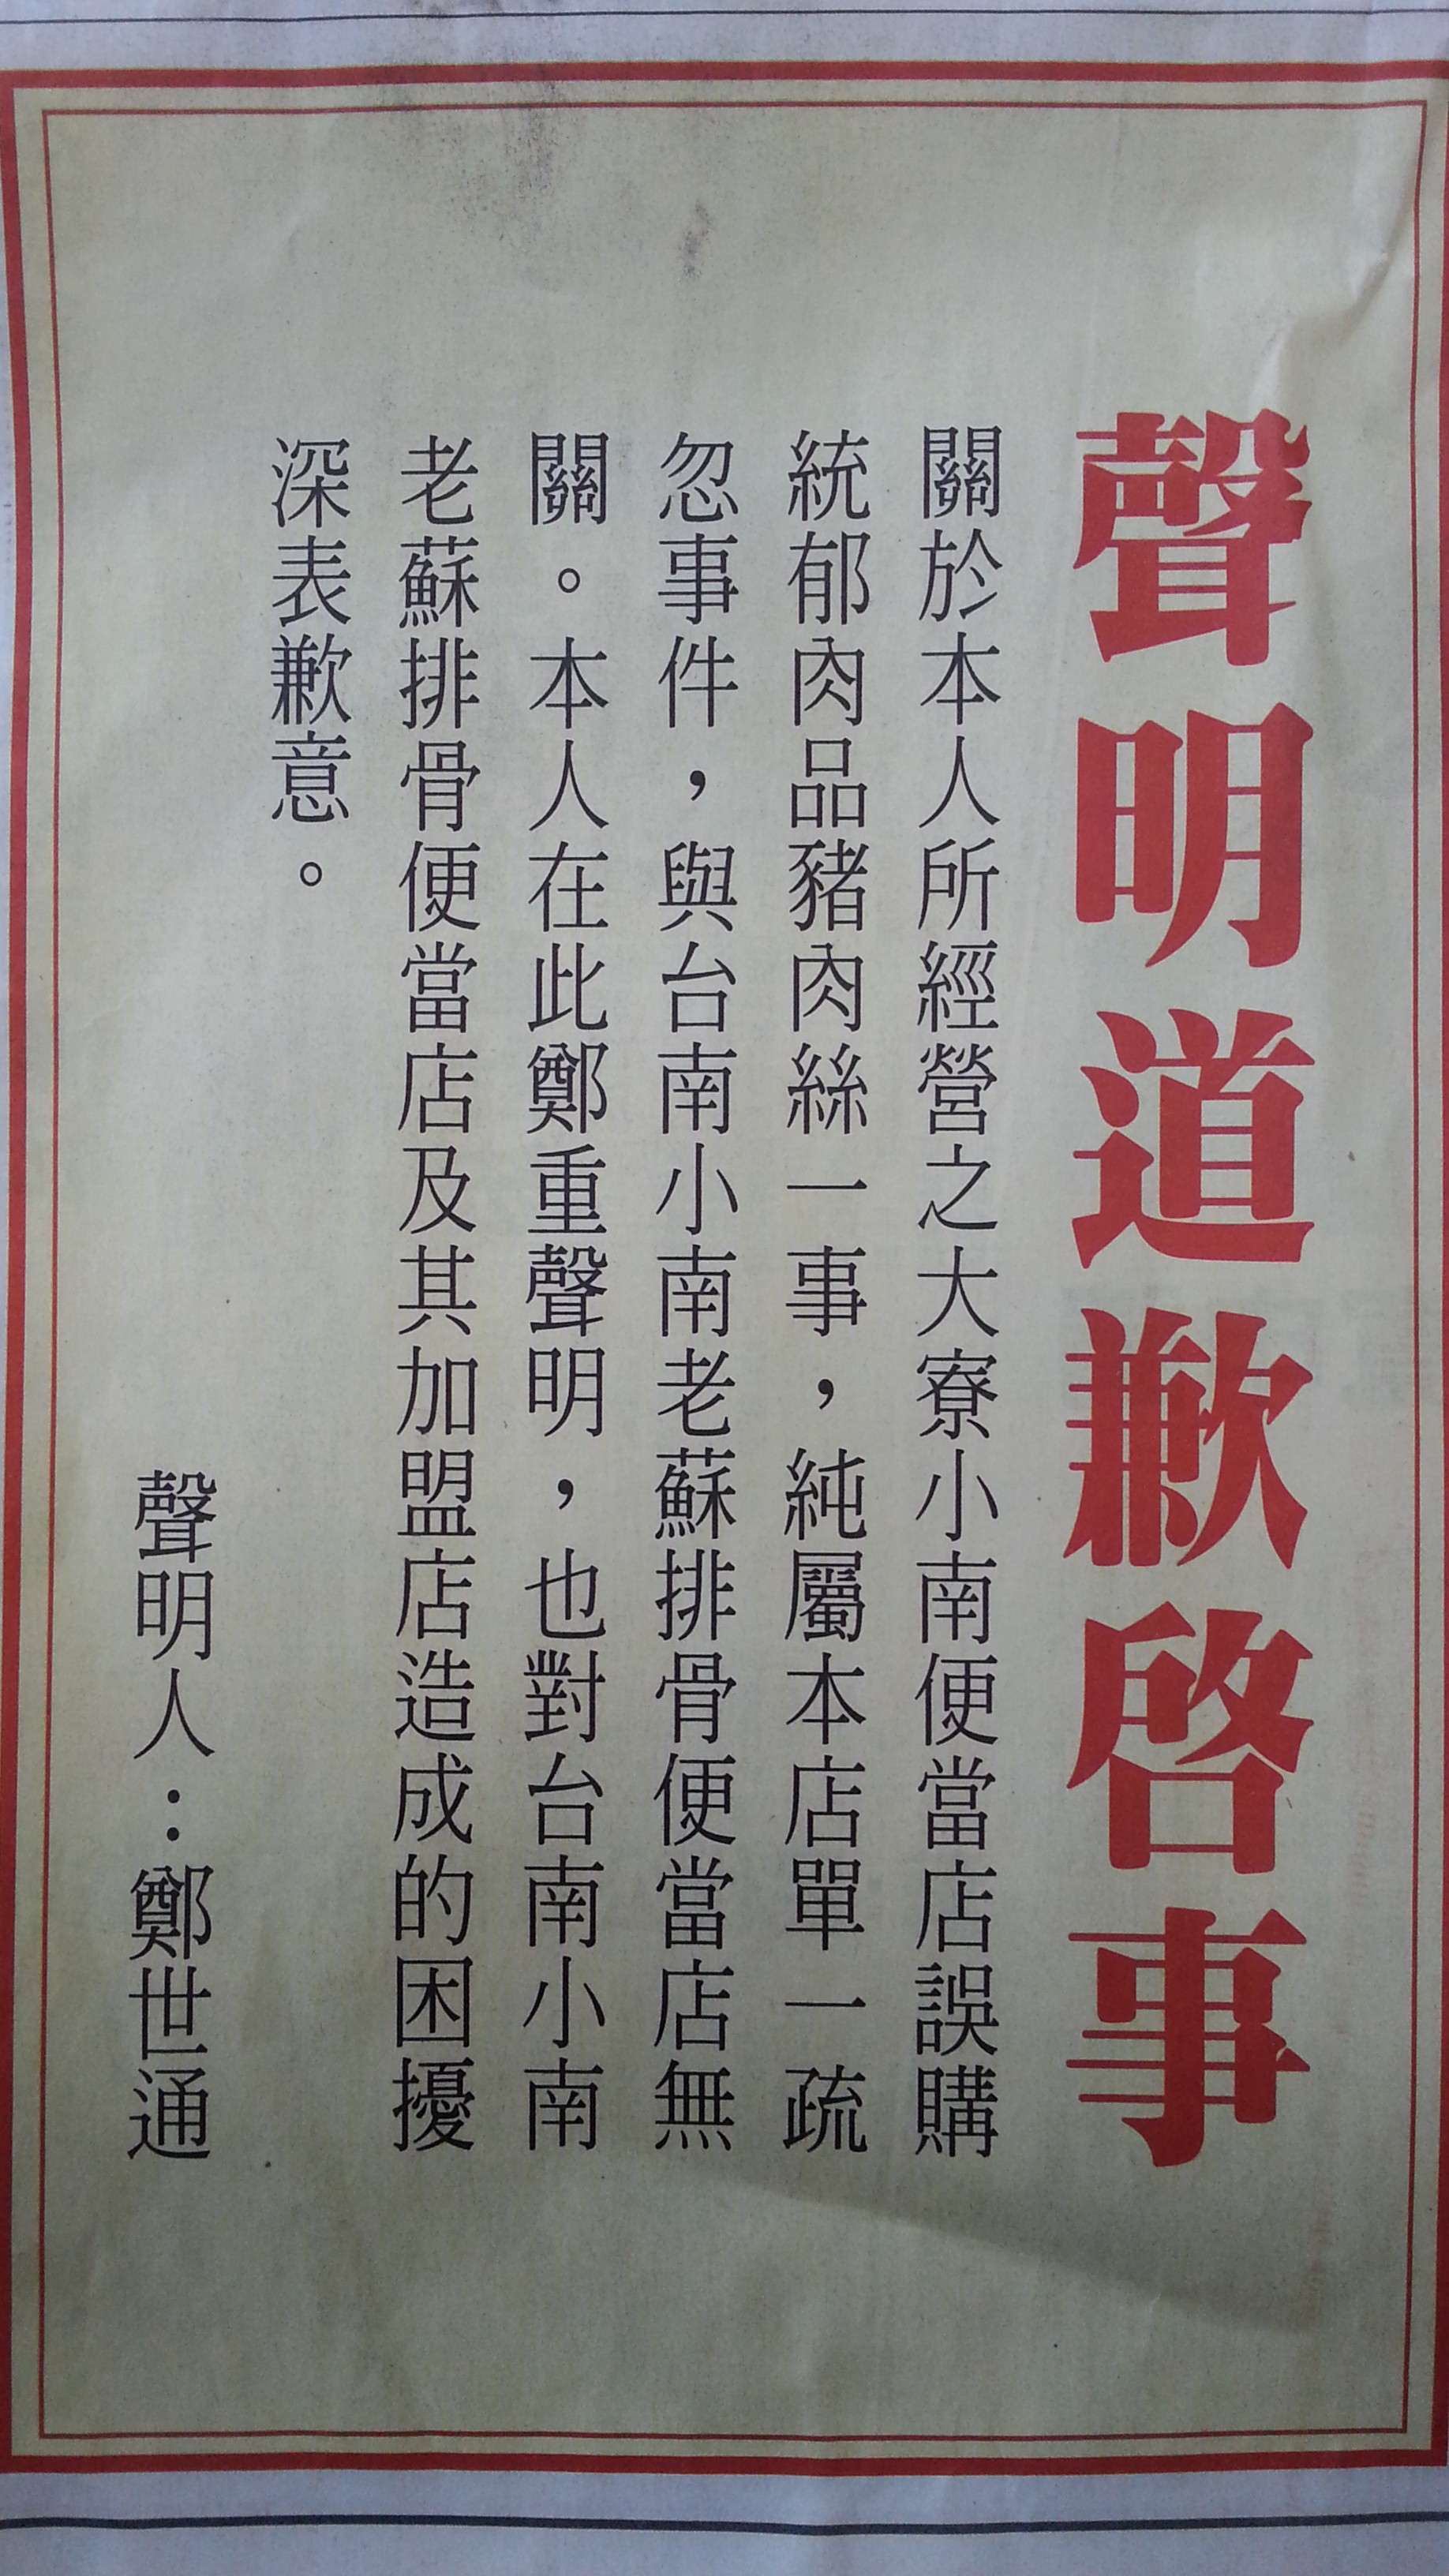 聲明道歉啓事
關於本人所經營之大寮小南便當店誤購
統郁肉品豬肉絲一事，純屬本店單一疏
忽事件，與台南小南老蘇排骨便當店無
關。本人在此鄭重聲明，也對台南小南
老蘇排骨便當店及其加盟店造成的困擾
深表歉意。
聲明人：鄭世通